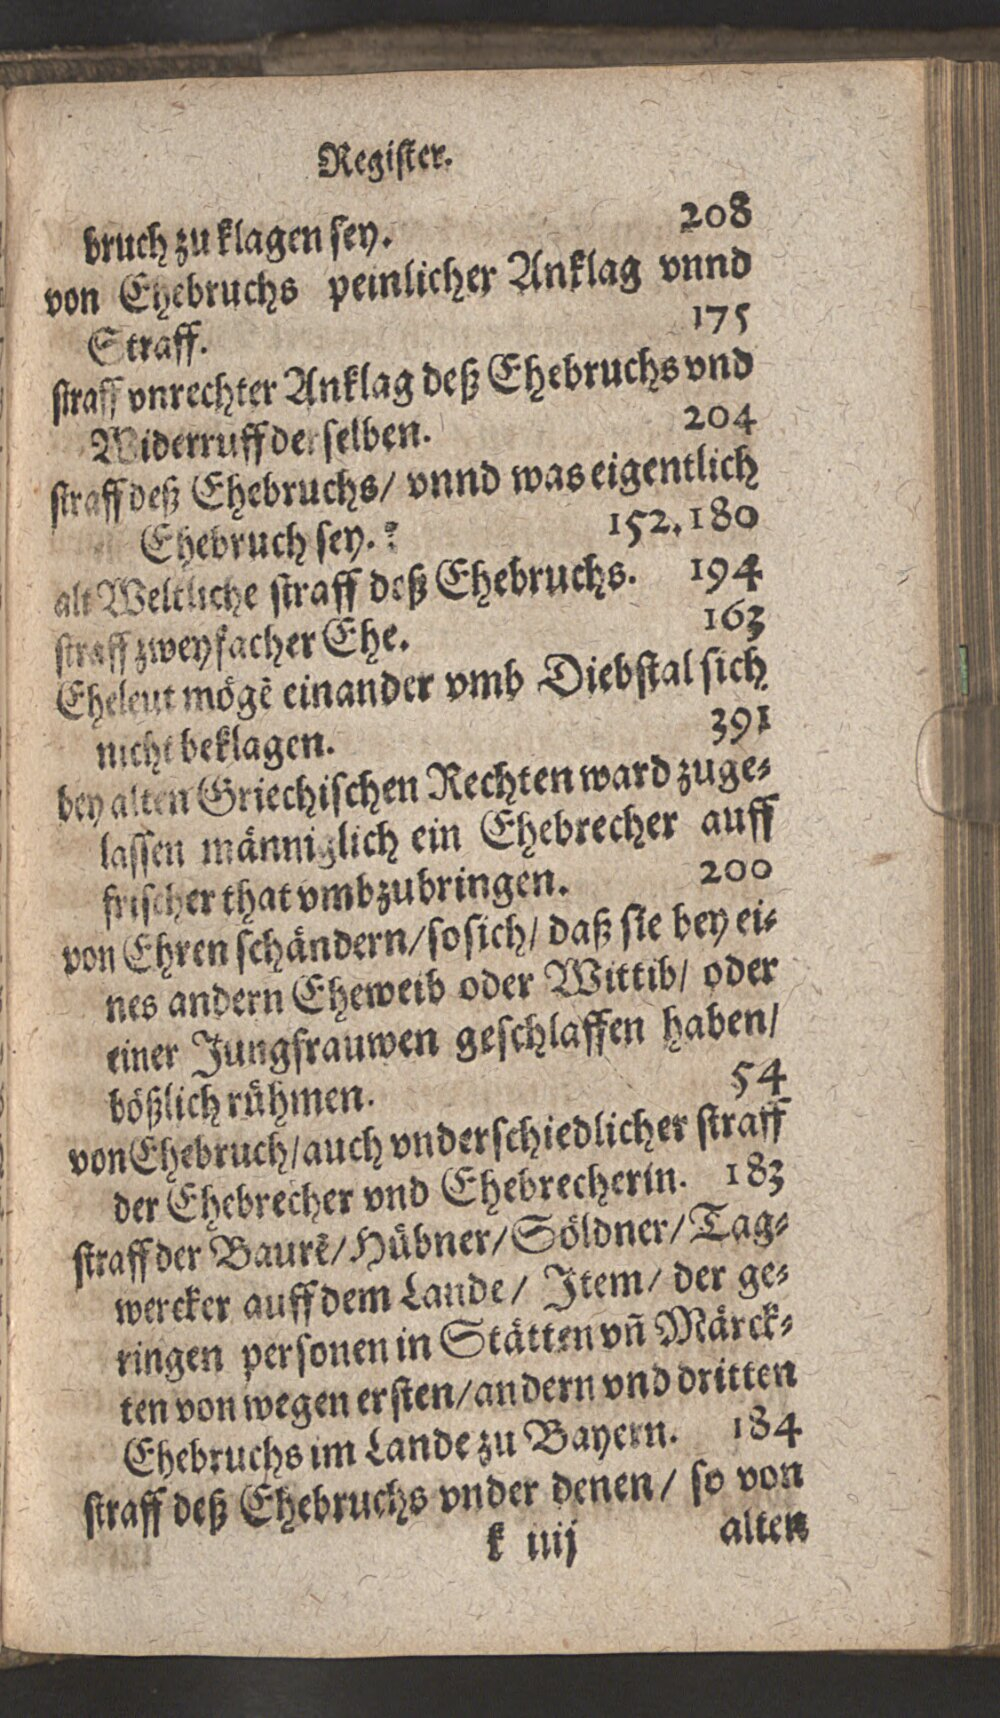 Register.
bruch zu klagen sey. 208
von Ehebruchs peinlicher Anklag vnnd
Straff. 175
straff vnrechter Anklag deß Ehebruchs vnd
Widerruff derselben. 204
straff deß Ehebruchs/ vnnd was eigentlich
Ehebruch sey. 152.180
alt Weltliche straff deß Ehebruchs. 194
straff zweyfacher Ehe. 163
Eheleut mögẽ einander vmb Diebstal sich
nicht beklagen. 391
bey alten Griechischen Rechten ward zuge-
lassen männiglich ein Ehebrecher auff
frischer that vmbzubringen. 200
von Ehren schändern/ so sich/ daß sie bey ei-
nes andern Eheweib oder Wittib/ oder
einer Jungfrauwen geschlaffen haben/
bößlich rühmen. 54
von Ehebruch/ auch vnderschiedlicher straff
der Ehebrecher vnd Ehebrecherin. 183
straff der Baurẽ/ Hübner/ Söldner/ Tag-
wercker auff dem Lande/ Item/ der ge-
ringen personen in Stätten vñ Märck-
ten von wegen ersten/ andern vnd dritten
Ehebruchs im Lande zu Bayern. 184
straff deß Ehebruchs vnder denen/ so von
k iiij alten